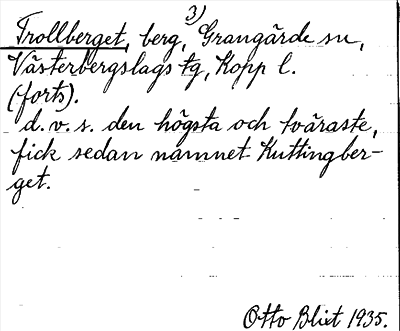 3)
Trollberget, berg, Grangärde sn,
Västerbergslags tg, Kopp l.
(forts).
d.v.s. den högsta och tväraste,
fick sedan namnet Kuttingber-
get.
Otto Blixt 1935.